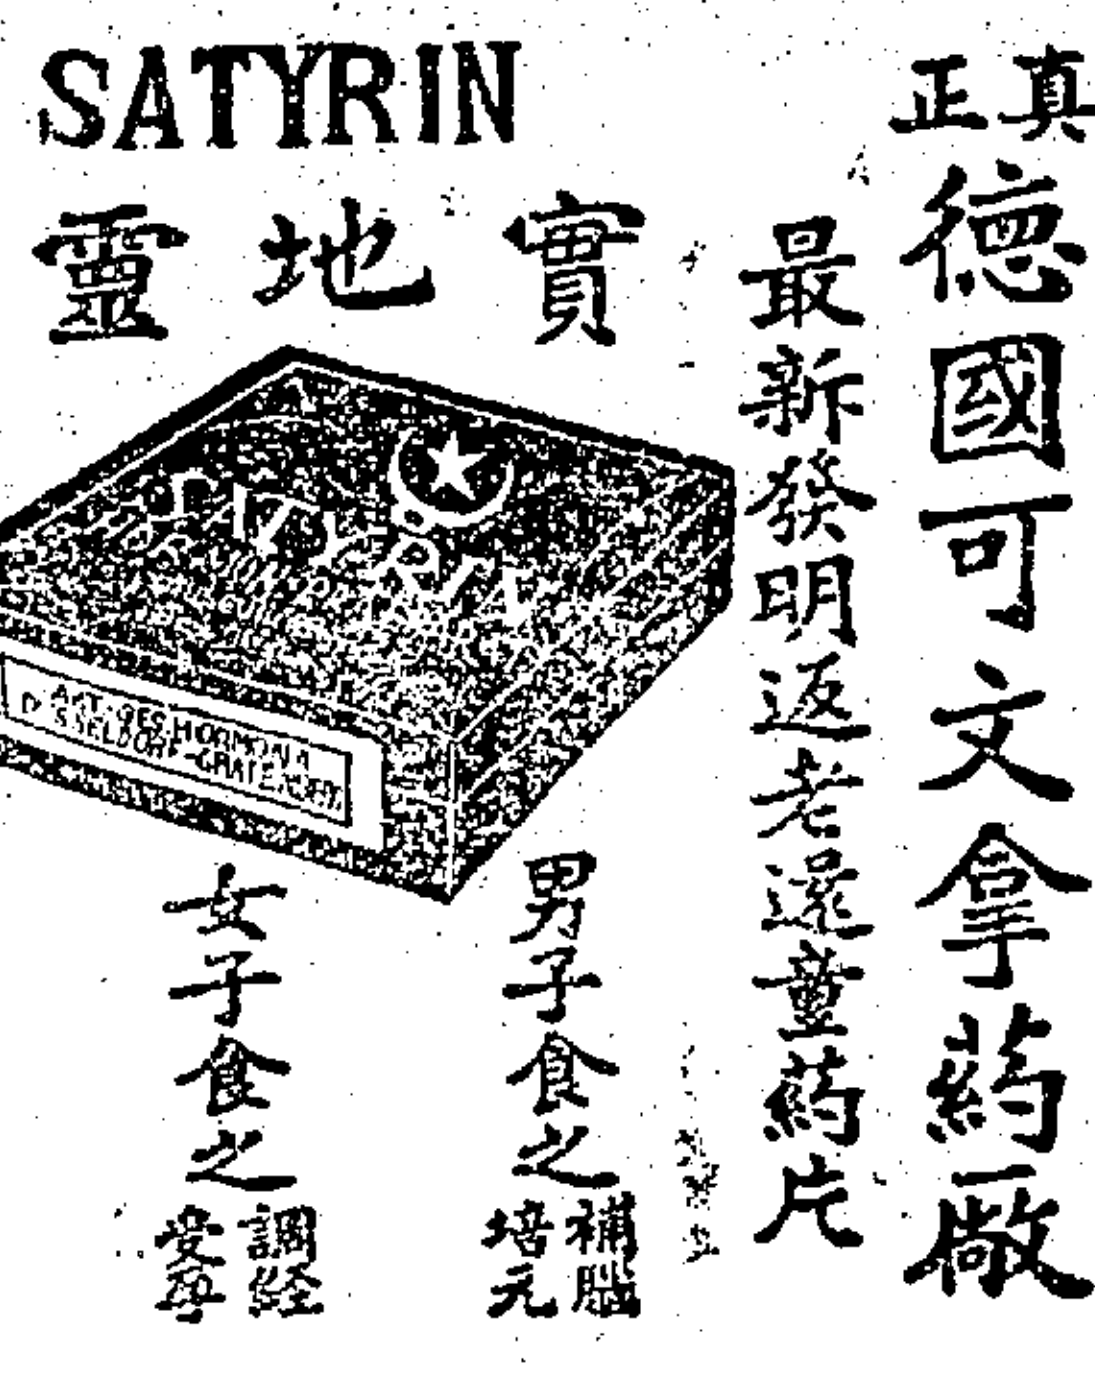 SATYRIN
真正
德國可文拿葯廠
最新發明返老還童葯片
實地靈
SATYRIN
AKT-GES HORMONA
DÜSSELDORF-GRAFENBERG
男子食之
補腦
培元
女子食之
調経
受孕